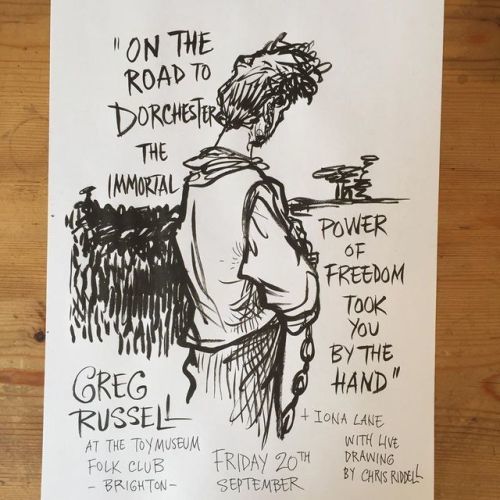 "ON THE
ROAD TO
DORCHESTER
THE
IMMORTAL
POWER
OF
FREEDOM
TOOK
YOU
BY THE
HAND"
GREG
RUSSELL
AT THE TOYMUSEUM
FOLK CLUB
- BRIGHTON -
FRIDAY 20TH
SEPTEMBER
+ IONA LANE
WITH LIVE
DRAWING
BY CHRIS RIDDELL